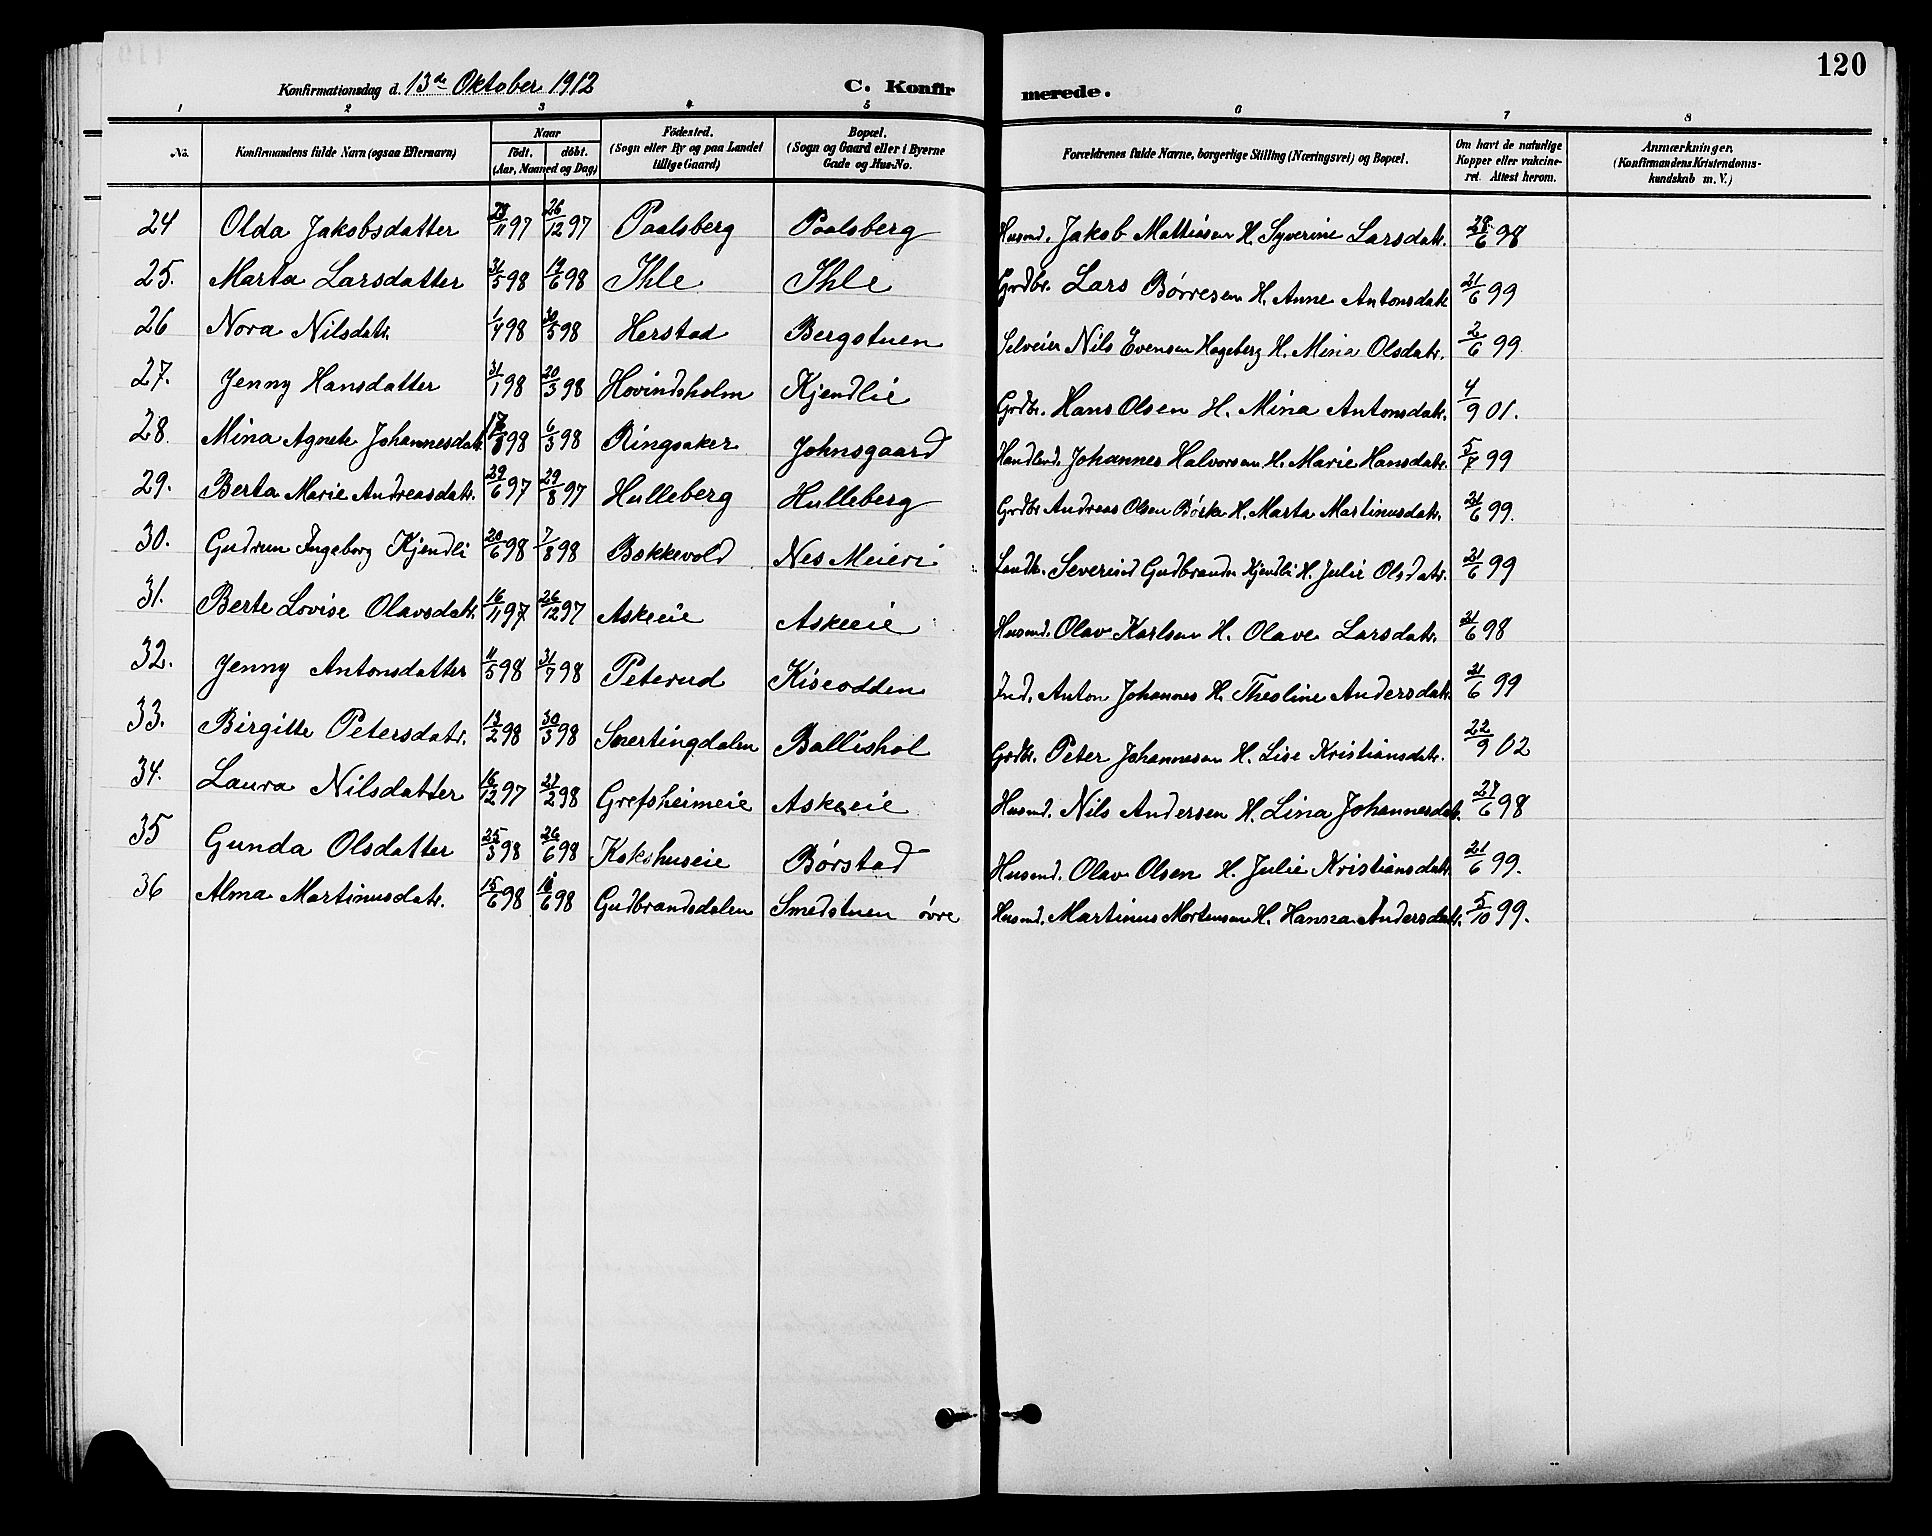 120
Konfirmationsdag d. 13de Oktober 1912 C. Konfir merede.
1 2 3 4 5 6 7 8
No. Konfirmandens fulde Navn (ogsaa Efternavn) Naar födt. döbt. (Aar, Maaned og Dag) Födested. (Sogn eller By og paa Landet tillige Gaard) Bopæl. (Sogn og Gaard eller i Byerne Gade og Hus-No. Forældrenes fulde Navne, borgerlige Stilling (Næringsvei) og Bopæl. Om havt de naturlige Kopper eller vakcineret. Attest herom. Anmærkninger. (Konfirmandens Kristendomskundskab m. V.)
24 Olda Jakobsdatter /11 97 26/12 97 Paalsberg Paalsberg Husmd. Jakob Mattiasen H. Syverine Larsdatr. 28/6 98
25. Marta Larsdatter 31/5 98 19/6 98 Ihle Ihle Grdbr. Lars Børresen H. Anne Antonsdatr 21/6 99
26 Nora Nilsdatr. 1/4 98 30/5 98 Herstad Bergstuen Selveier Nils Evensen Hageberg H. Mina Olsdatr. 2/6 99
27. Jenny Hansdatter 31/1 98 20/3 98 Hovindsholm Kjendlie Grdbr. Hans Olsen H. Mina Antonsdatr. 4/9 01.
28. Mina Agnete Johannesdatr 98 6/3 98 Ringsaker Johnsgaard Handlend. Johannes Halvorsen H. Marie Hansdatr. 5/7 99
29. Berta Marie Andreasdatr. 29/6 97 29/8 97 Hulleberg Hulleberg Grdbr Andreas Olsen Børke H. Marta Martinusdatr. 21/6 99.
30. Gudrun Ingeborg Kjendli 20/6 98 7/8 98 Bakkevold Nes Meieri Landh. Severin Gudbrandsn Kjendli H. Julie Olsdatr. 21/6 99
31. Berte Lovise Olavsdatr. 16/11 97 26/12 97 Askeeie Askeeie Husmd. Olav Karlsen H. Olave Larsdatr. 21/6 98
32. Jenny Antonsdatter 11/5 98 31/7 98 Peterud Kiseodden Ind. Anton Johannes H. Theoline Andersdatr. 21/6 99
33. Birgitte Petersdatr. 13/2 98 30/3 98 Snertingdalen Ballishol Grdbr. Peter Johannesen H. Lise Kristiansdatr. 22/9 02
34. Laura Nilsdatter 16/12 97 27/2 98 Grefsheimeie Askeeie Husmd. Nils Andersen H. Lina Johannesdatr. 27/6 98
35 Gunda Olsdatter 25/3 98 26/6 98 Kokshuseie Børstad Husmd. Olav Olsen H. Julie Kristiansdatr 21/6 99.
36 Alma Martinusdatr. 15/6 98 /6 98 Gudbrandsdalen Smedstuen övre Husmd. Martinus Mortensen H. Hansea Andersdatr. 5/10 99.